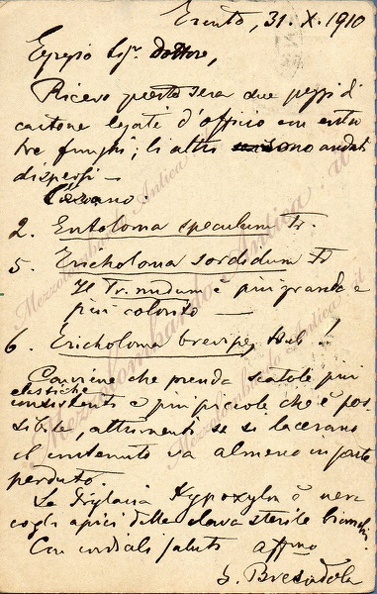 Trento, 31. X. 1910
Egregio Sigr. Dottore,
Ricevo questa sera due pezzi di
cartone legati d'officio con entro
tre funghi; li altri sono andati
dispersi —
Erano:
2. Entoloma speculum Fr.
5. Tricholoma sordidum Fr
Il Tr. nudum è più grande e
più colorito —
6. Tricholoma brevipes, Bull!
Conviene che prenda scatole più
consistenti e più piccole che è pos-
sibile, altrimenti se si lacerano
il contenuto va almeno in parte
perduto.
La Xylaria Hypoxylon è nera
cogli apici della clava sterile bianchi.
Con cordiali saluti affmo
G. Bresadola
Mezzolombardo Antica.it